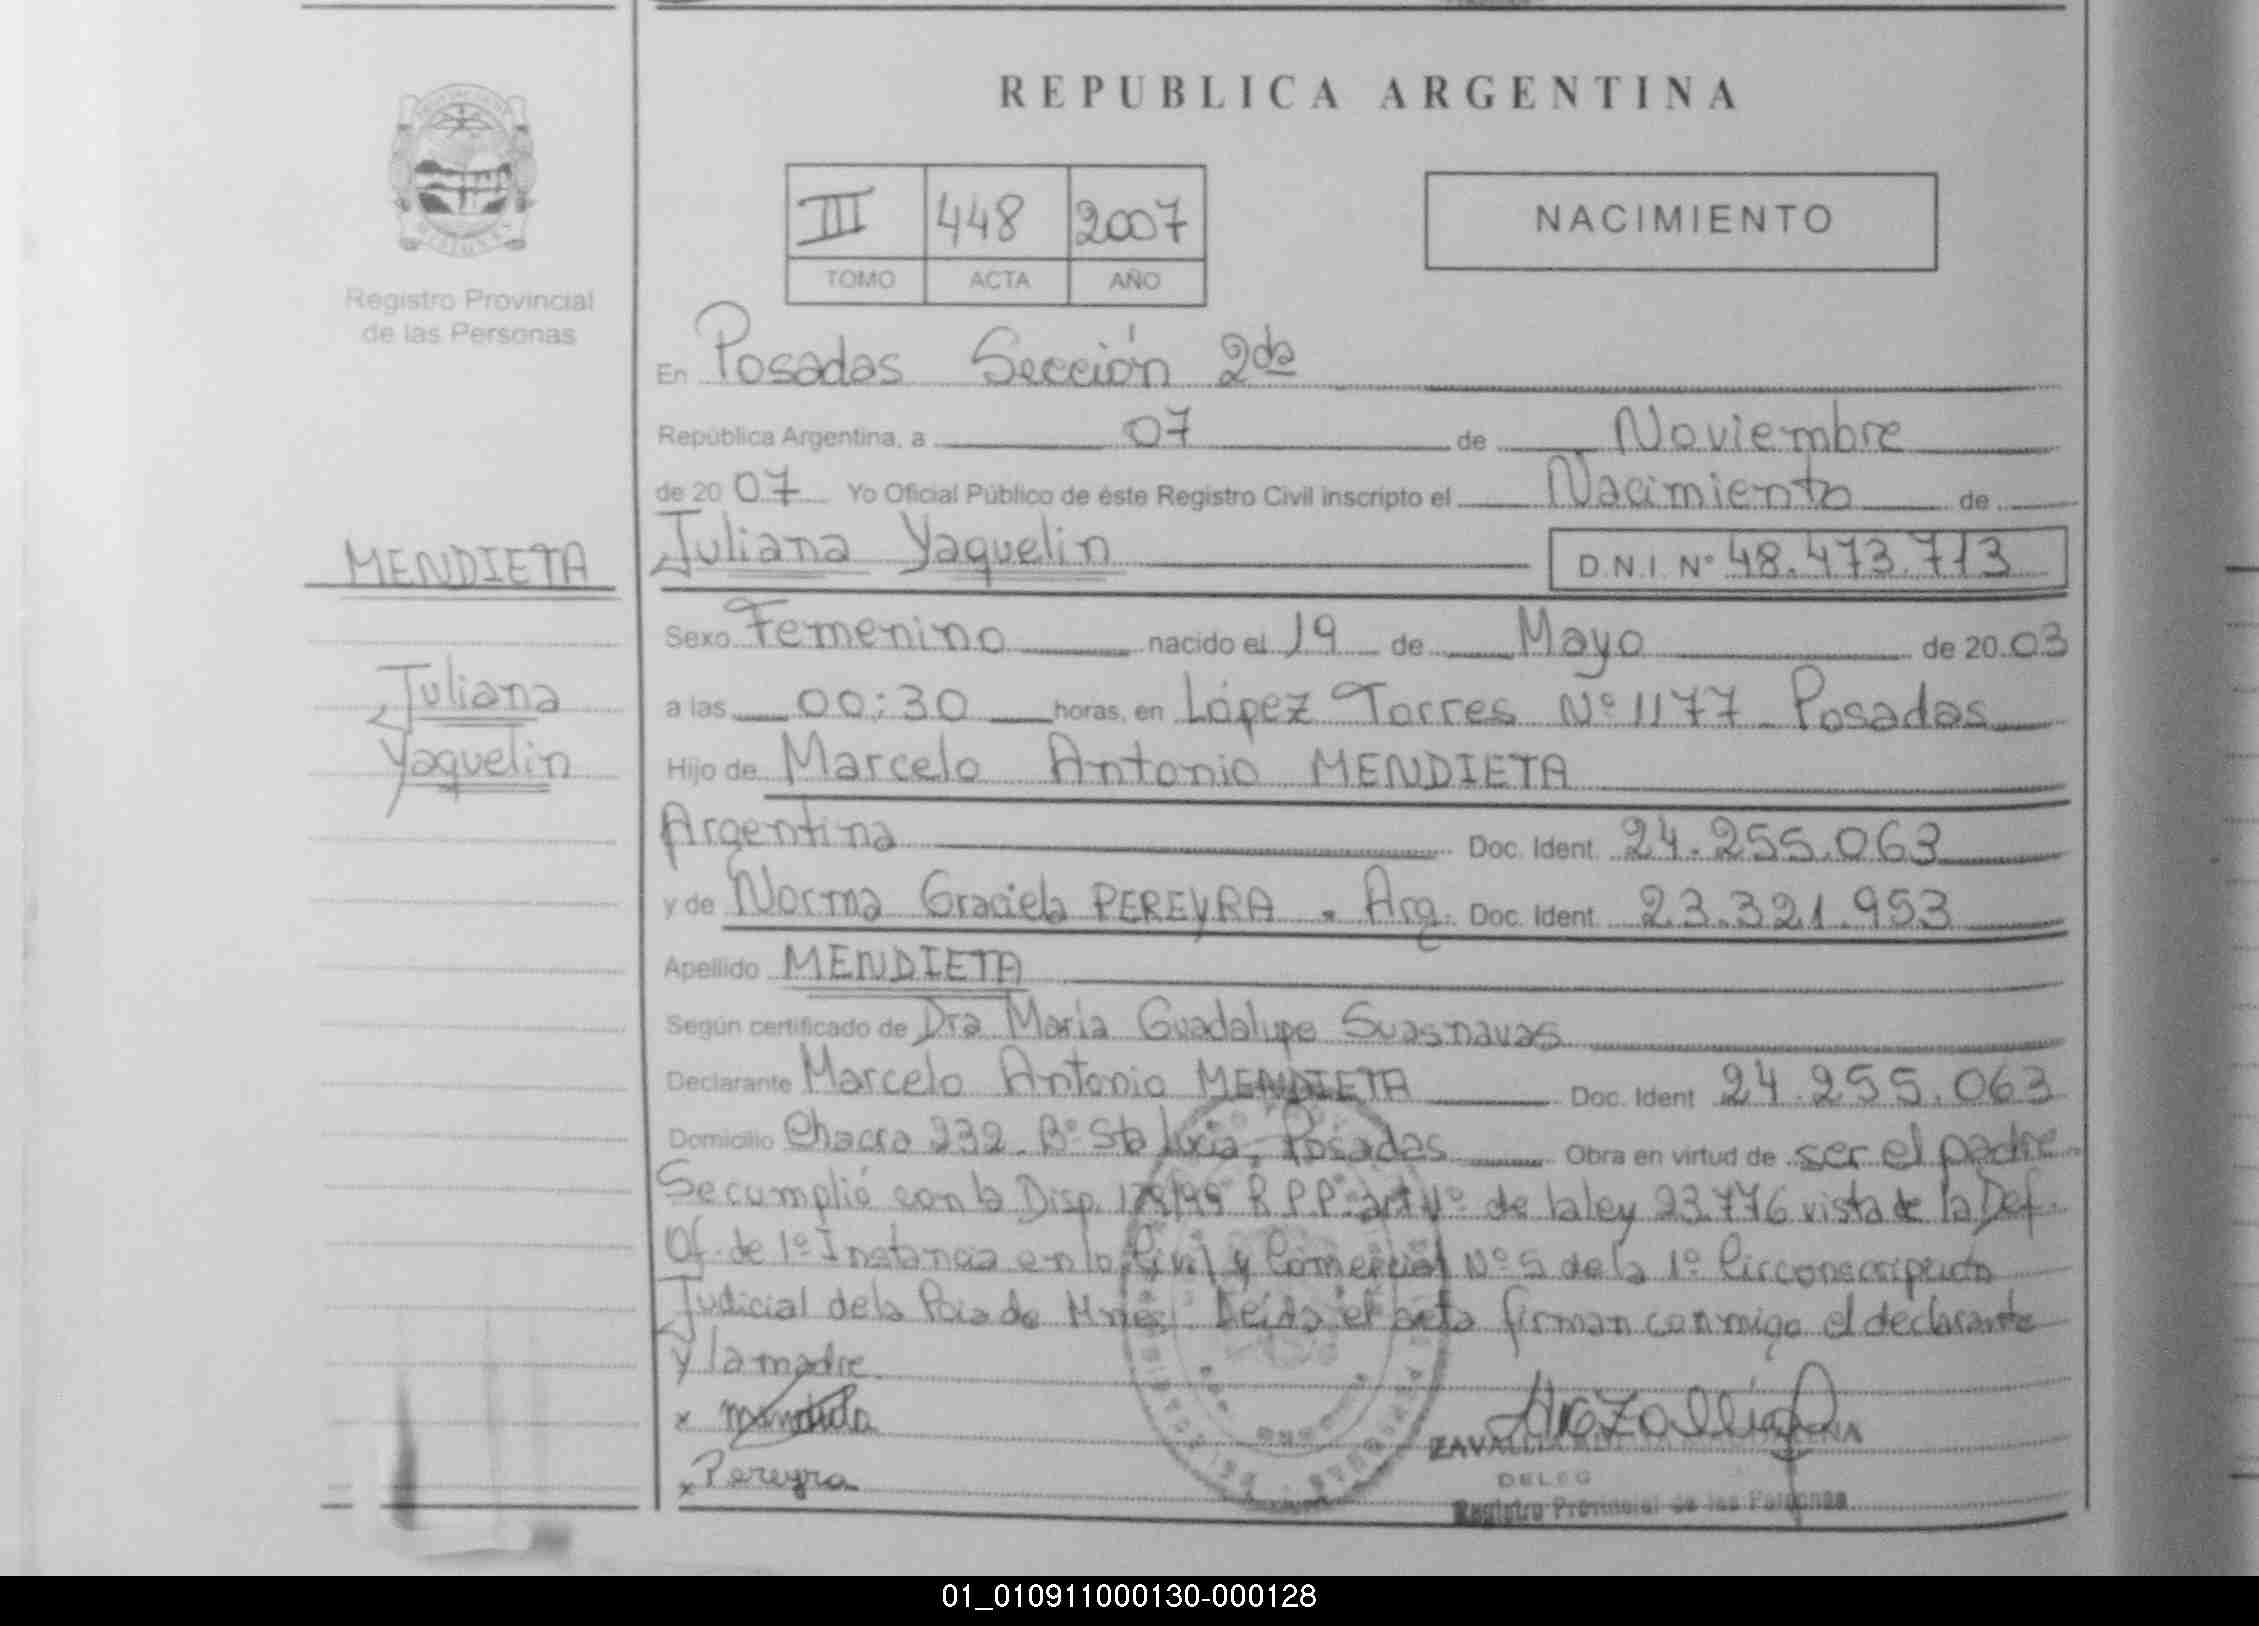 REPUBLICA ARGENTINA
III 448 2007
TOMO ACTA AÑO
NACIMIENTO
Registro Provincial
de las Personas
En Posadas Sección 2da
República Argentina, a 07 de Noviembre
de 20 07 Yo Oficial Público de éste Registro Civil inscripto el Nacimiento de
MENDIETA
Juliana Yaquelin D.N.I. Nº 48.473.713
Sexo Femenino nacido el 19 de Mayo de 20 03
Juliana
Yaquelin
a las 00:30 horas, en López Torres Nº 1177 Posadas
Hijo de Marcelo Antonio MENDIETA
Argentina Doc. Ident. 24.255.063
y de Norma Graciela PEREYRA . Arg. Doc. Ident. 23.321.953
Apellido MENDIETA
Según certificado de Dra Maria Guadalupe Suasnavas
Declarante Marcelo Antonio MENDIETA Doc. Ident 24.255.063
Domicilio Chacra 232. Bº Sta Lucia, Posadas Obra en virtud de ser el padre
Se cumplió con la Disp. R.P.P. art 4º de la ley 23.776 vista de la Def.
Of. de 1º Instancia en lo Civil y Comercial Nº 5 de la 1º Circonscripción
Judicial de la Pcia de Mnes. Leida el acta firman conmigo el declarante
y la madre.
x
x Pereyra
DELEG
Registro Provincial de las Personas
01_010911000130-000128